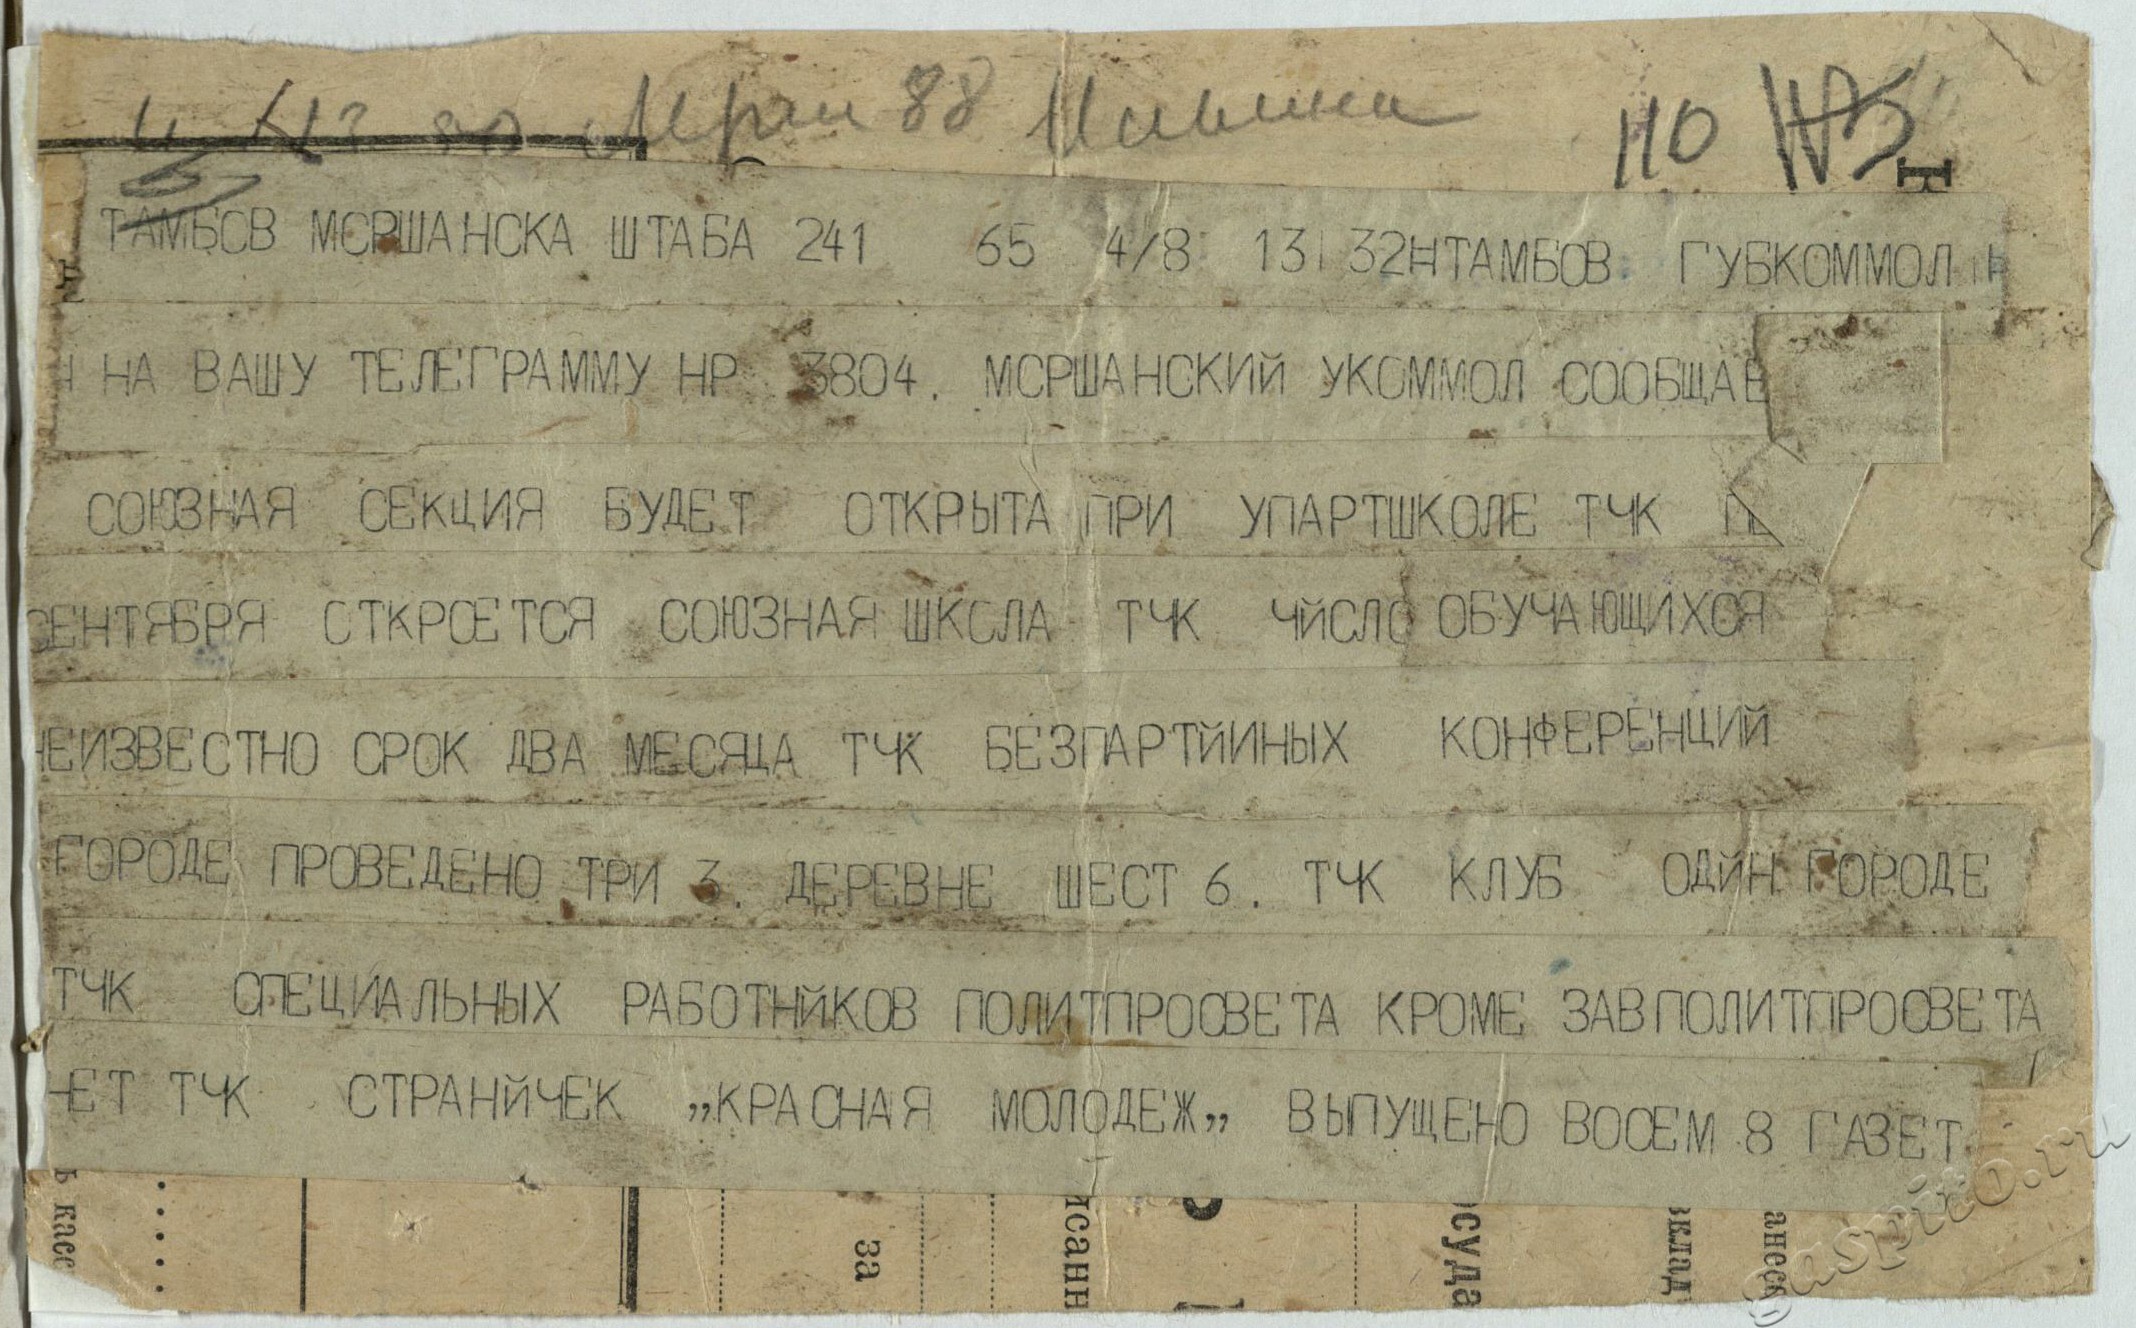 88
НО
ТАМБОВ МОРШАНСКА ШТАБА 241 65 4/8 13 32НТАМБОВ ГУБКОММОЛ
НА ВАШУ ТЕЛЕГРАММУ НР 3804. МОРШАНСКИЙ УКОММОЛ СООБЩАЕ
СОЮЗНАЯ СЕКЦИЯ БУДЕТ ОТКРЫТА ПРИ УПАРТШКОЛЕ ТЧК
СЕНТЯБРЯ ОТКРОЕТСЯ СОЮЗНАЯ ШКОЛА ТЧК ЧЙСЛО ОБУЧАЮЩИХСЯ
НЕИЗВЕСТНО СРОК ДВА МЕСЯЦА ТЧК БЕЗПАРТЙИНЫХ КОНФЕРЕНЦИЙ
ГОРОДЕ ПРОВЕДЕНО ТРИ 3. ДЕРЕВНЕ ШЕСТ 6. ТЧК КЛУБ ОДЙН ГОРОДЕ
ТЧК СПЕЦИАЛЬНЫХ РАБОТНЙКОВ ПОЛИТПРОСВЕТА КРОМЕ ЗАВПОЛИТПРОСВЕТА
НЕТ ТЧК СТРАНЙЧЕК „КРАСНАЯ МОЛОДЕЖ„ ВЫПУЩЕНО ВОСЕМ 8 ГАЗЕТ
ь касс
за
исанн
осуда
вклад
ансск
gaspito.ru